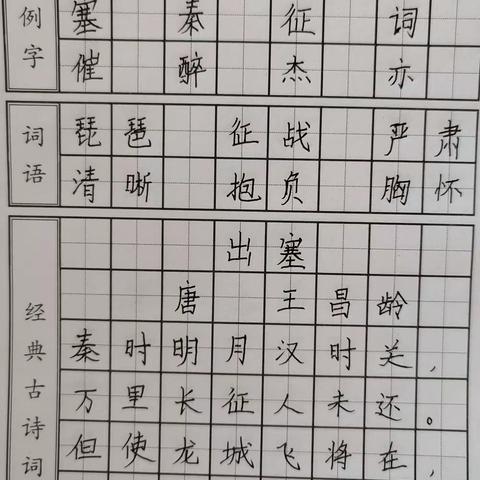 例字
塞 秦 征 词
催 醉 杰 亦
词语
琵琶 征战 严肃
清晰 抱负 胸怀
经典古诗词
出塞
唐 王昌龄
秦时明月汉时关，
万里长征人未还。
但使龙城飞将在，